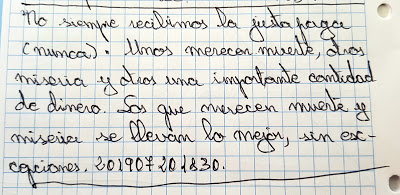 No siempre recibimos la justa paga
(nunca). Unos merecen muerte, otros
miseria y otros una importante cantidad
de dinero. Los que merecen muerte y
miseria se llevan lo mejor, sin ex-
cepciones. 201907201830.